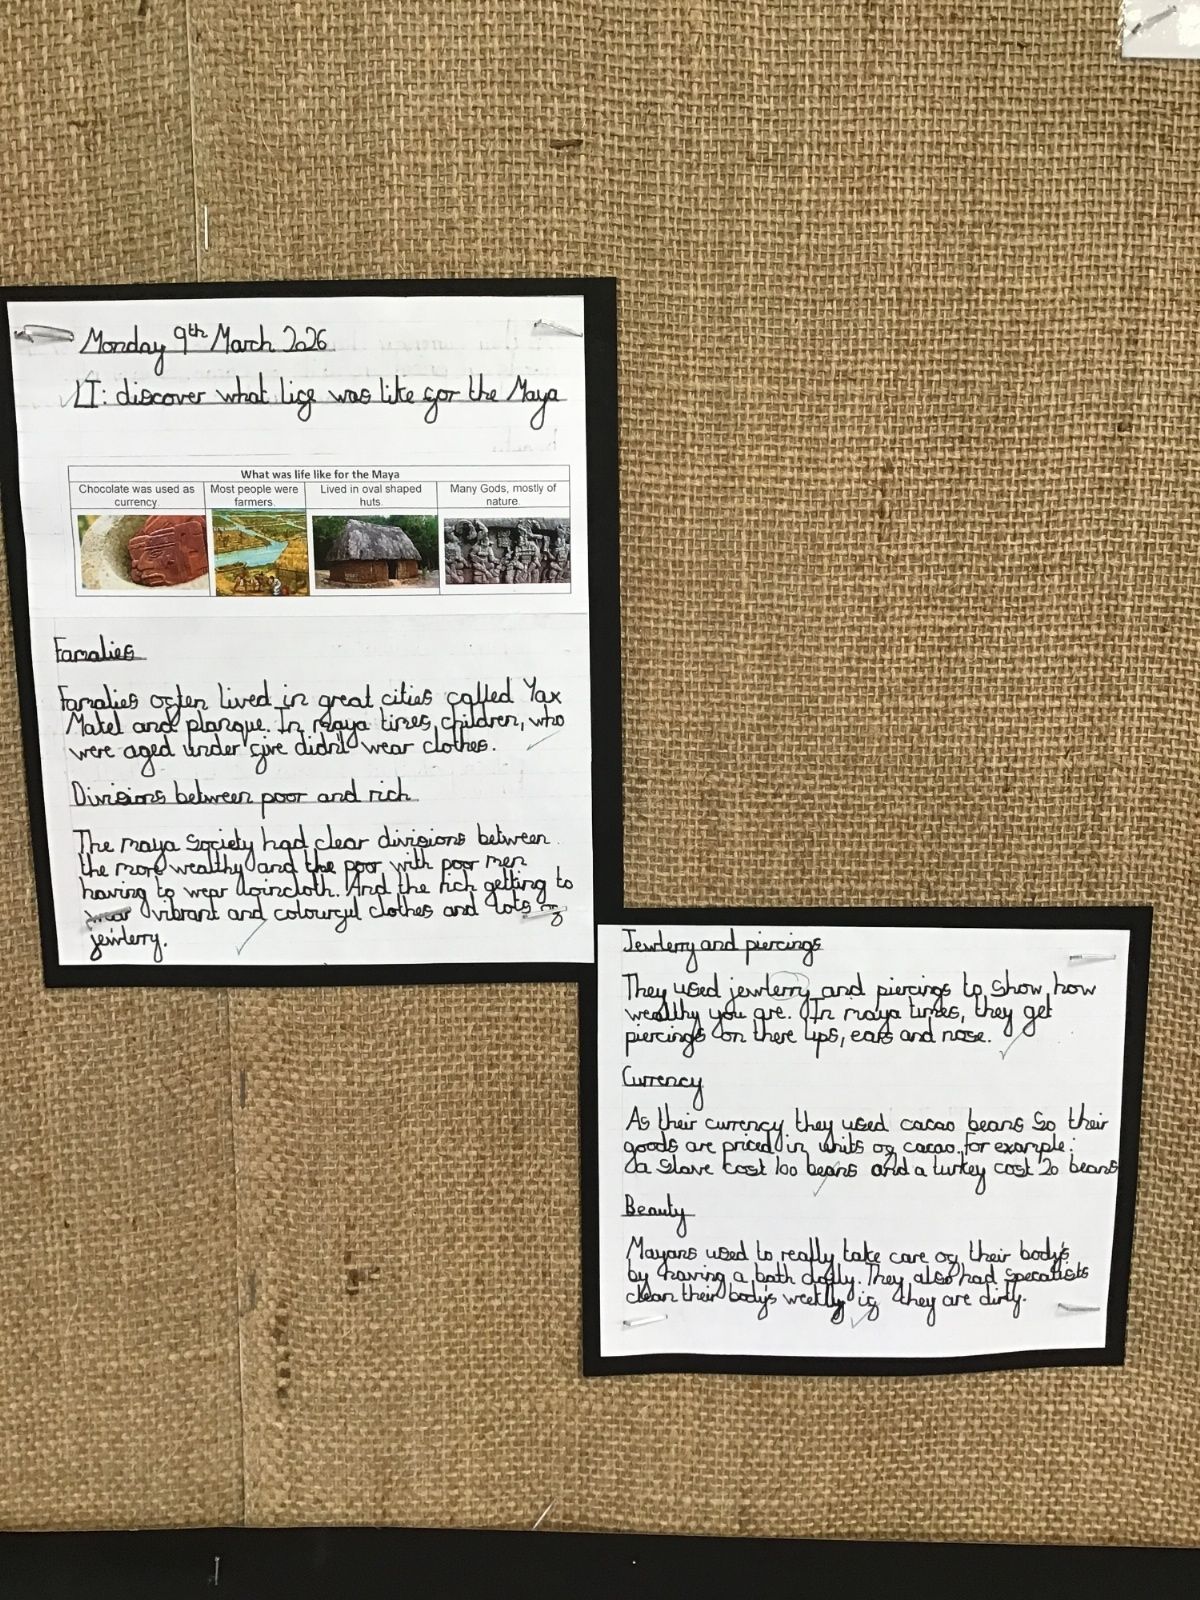 Monday 9th March 2026
LI: discover what life was like for the Maya
What was life like for the Maya
Chocolate was used as currency.
Most people were farmers.
Lived in oval shaped huts.
Many Gods, mostly of nature.
Famalies
Famalies often lived in great cities called Yax
Matel and planque. In maya times, children, who
were aged under five didn't wear clothes.
Divisions between poor and rich
The maya society had clear divisions between
the more wealthy and the poor with poor men
having to wear loincloth. And the rich getting to
wear vibrant and colourful clothes and lots of
jewlerry.
Jewlerry and piercings
They used jewlerry and piercings to show how
wealthy you are. In maya times, they get
piercings on there lips, ears and nose.
Currency
As their currency they used cacao beans so their
goods are priced in units of cacao. For example:
a slave cost 100 beans and a turkey cost 20 beans
Beauty
Mayans used to really take care of their body's
by having a bath daily. They also had specalists
clean their body's weekly if they are dirty.